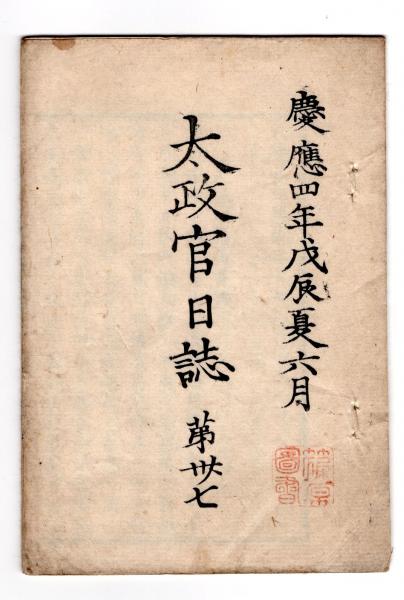 慶應四年戊辰夏六月
太政官日誌 第卅七